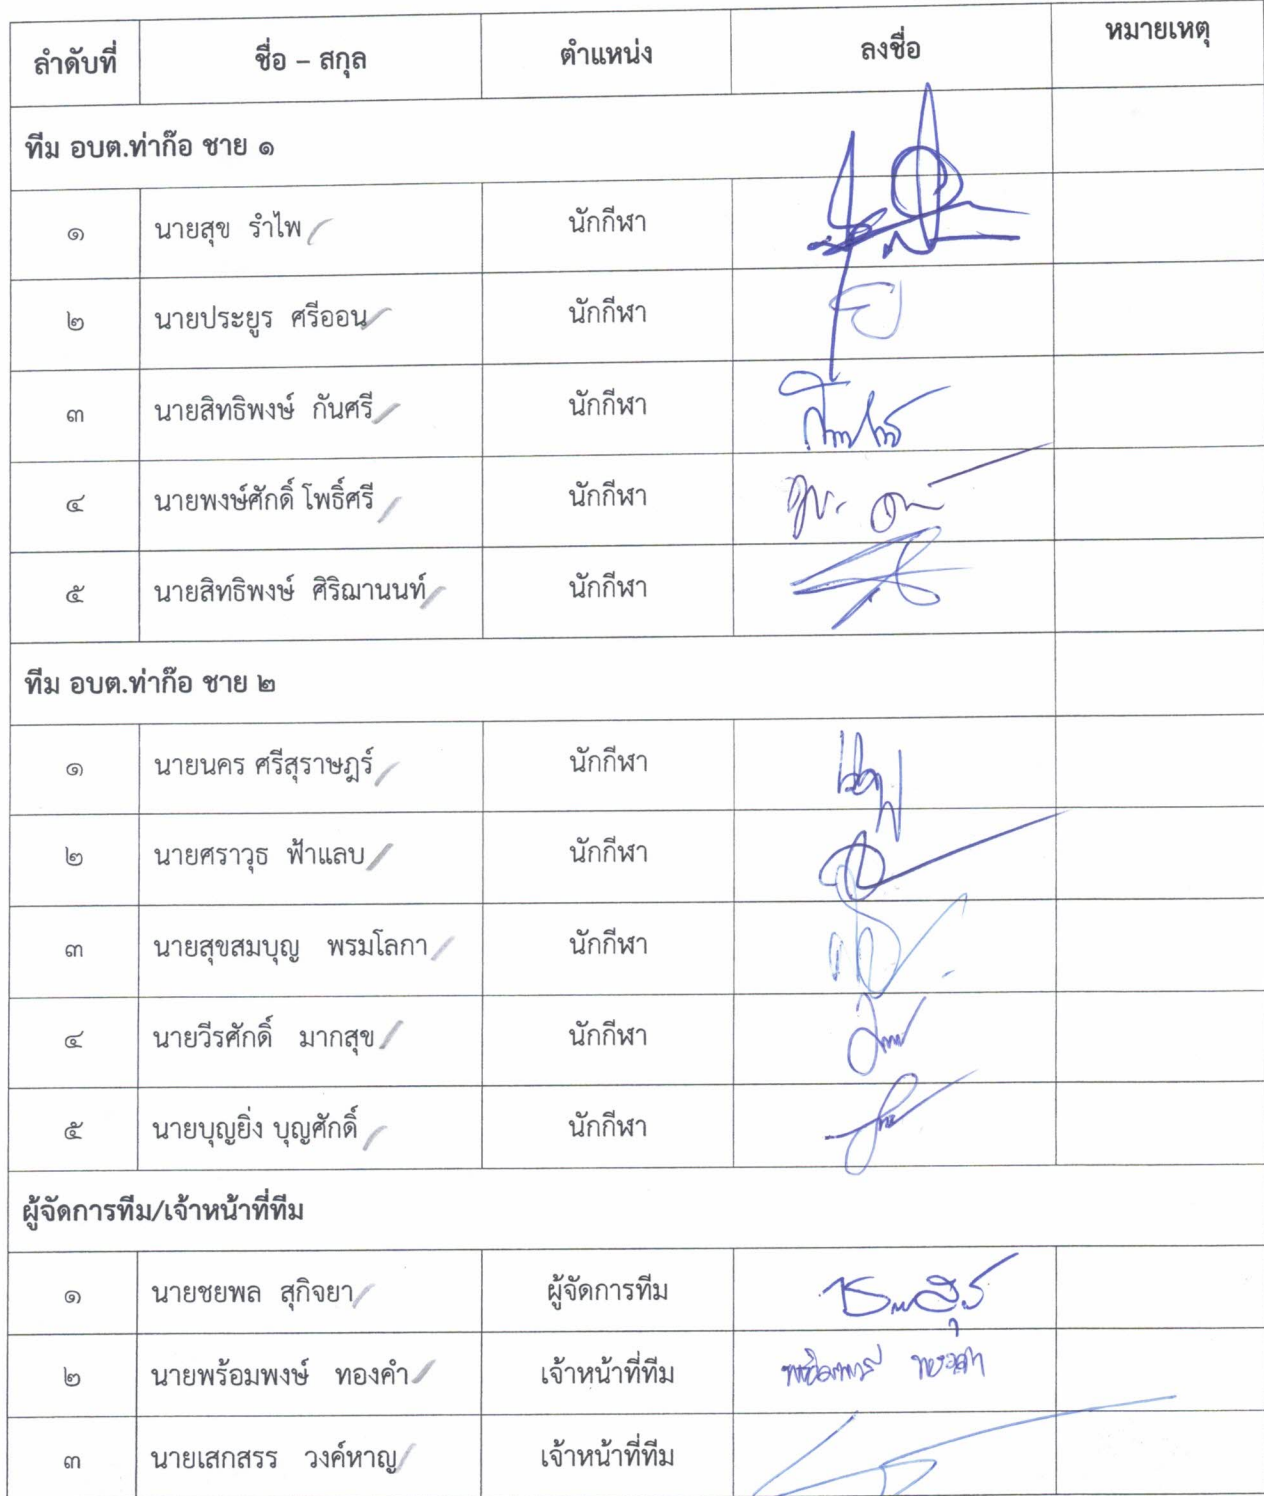 ลำดับที่ ชื่อ – สกุล ตำแหน่ง ลงชื่อ หมายเหตุ
ทีม อบต.ท่าก๊อ ชาย ๑
๑ นายสุข รำไพ นักกีฬา
๒ นายประยูร ศรีออน นักกีฬา
๓ นายสิทธิพงษ์ กันศรี นักกีฬา
๔ นายพงษ์ศักดิ์ โพธิ์ศรี นักกีฬา
๕ นายสิทธิพงษ์ ศิริฌานนท์ นักกีฬา
ทีม อบต.ท่าก๊อ ชาย ๒
๑ นายนคร ศรีสุราษฎร์ นักกีฬา
๒ นายศราวุธ ฟ้าแลบ นักกีฬา
๓ นายสุขสมบุญ พรมโลกา นักกีฬา
๔ นายวีรศักดิ์ มากสุข นักกีฬา
๕ นายบุญยิ่ง บุญศักดิ์ นักกีฬา
ผู้จัดการทีม/เจ้าหน้าที่ทีม
๑ นายชยพล สุกิจยา ผู้จัดการทีม
๒ นายพร้อมพงษ์ ทองคำ เจ้าหน้าที่ทีม พร้อมพงษ์ ทองคำ
๓ นายเสกสรร วงค์หาญ เจ้าหน้าที่ทีม